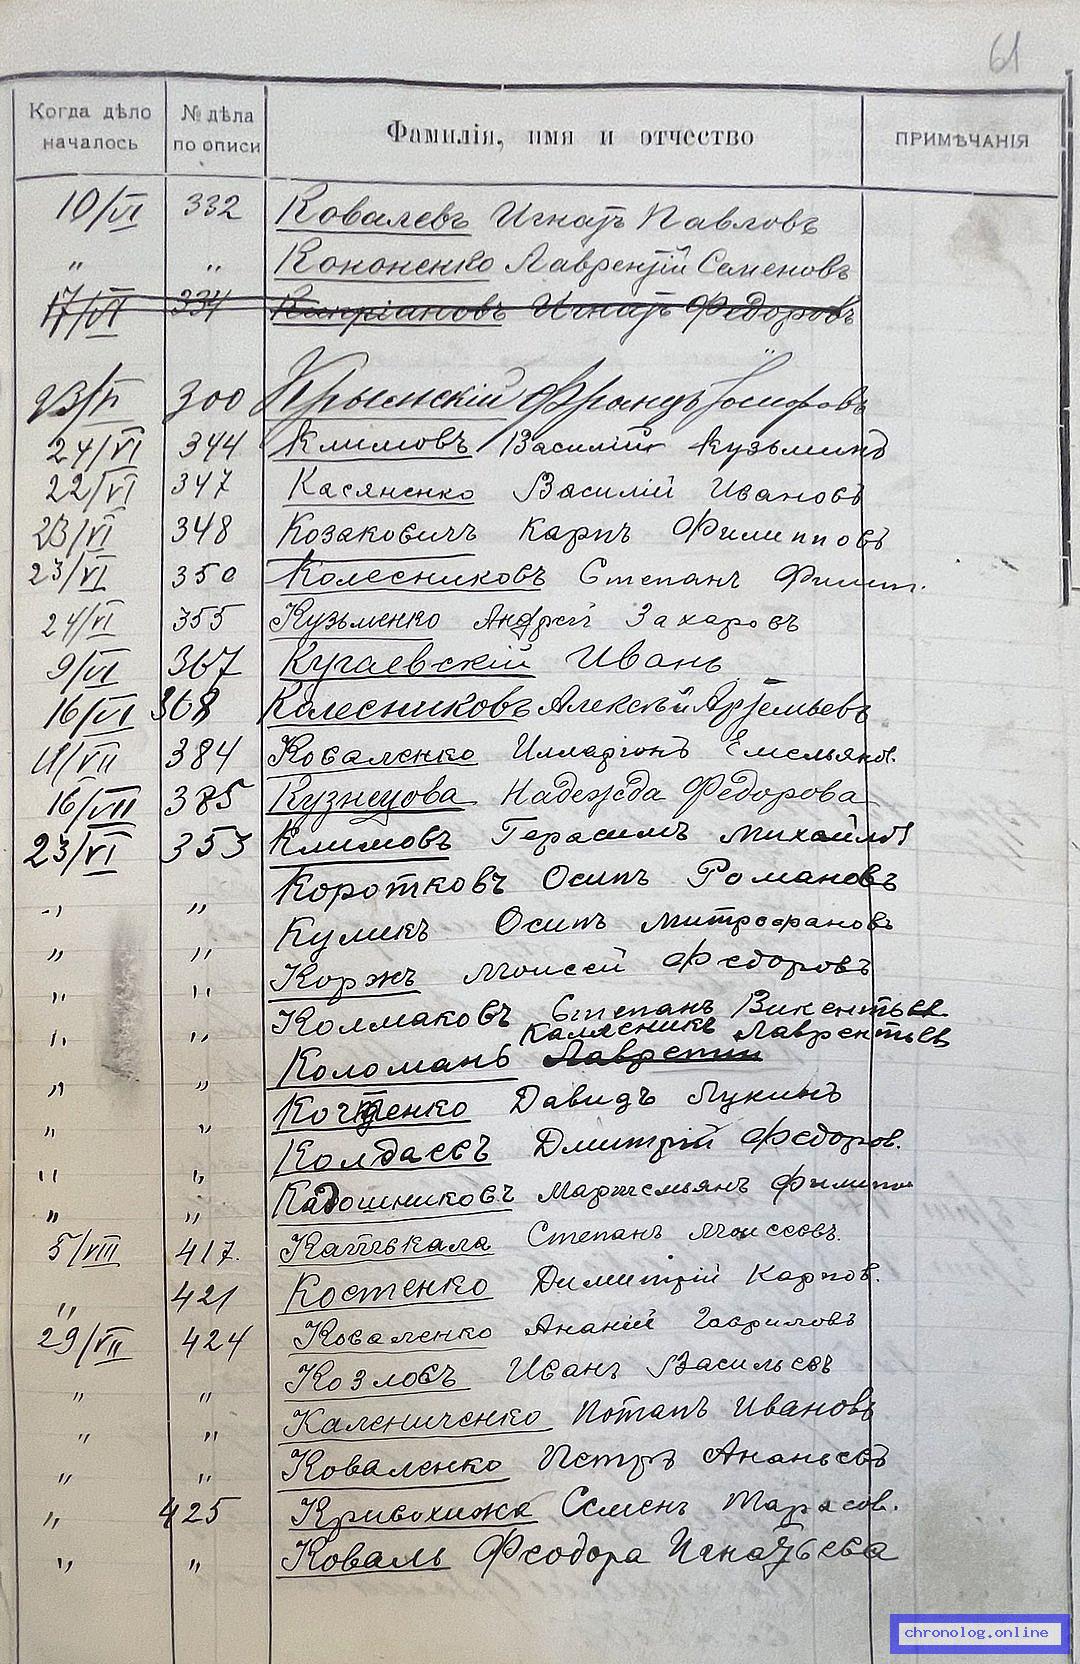 61
Когда дѣло началось № дѣла по описи Фамилія, имя и отчество ПРИМѢЧАНІЯ
10/VI 332 Ковалевъ Игнатъ Павловъ
" " Кононенко Лаврентій Семеновъ
17/VI 334 Кипріановъ Игнатъ Федоровъ
23/VI 300 Крынскій Францъ Іосифовъ
24/VI 344 Климовъ Василій Кузьминъ
22/VI 347 Касяненко Василій Ивановъ
23/VI 348 Козаковичъ Карпъ Филипповъ
23/VI 350 Колесниковъ Степанъ Филип.
24/VI 355 Кузьменко Андрей Захаровъ
9/VI 367 Кугаевскій Иванъ
16/VI 368 Колесниковъ Алексѣй Артемьевъ
11/VII 384 Коваленко Илларіонъ Емельянов.
16/VII 385 Кузнецова Надежда Федорова
23/VI 353 Климовъ Герасимъ Михайлов
" " Коротковъ Осипъ Романовъ
" " Куликъ Осипъ Митрофановъ
" " Коржъ Моисей Федоровъ
" " Колмаковъ Степанъ Викентьев
Калясникъ Лаврентьев
" " Коломанъ Лаврентий
" " Давидъ Лукинъ
" " Колдаевъ Дмитрій Федоров.
" " Кадошниковъ Маркемьянъ Филипп
5/VIII 417. Степанъ Моисеевъ.
" 421 Костенко Димитрій Карпов.
29/VII 424 Коваленко Ананій Гавриловъ
" " Козловъ Иванъ Васильевъ
" " Калениченко Потапъ Ивановъ
" " Коваленко Петръ Ананьевъ
" 425 Кривохижа Семенъ Тарасов.
" " Коваль Феодора Игнатьева
chronolog.online